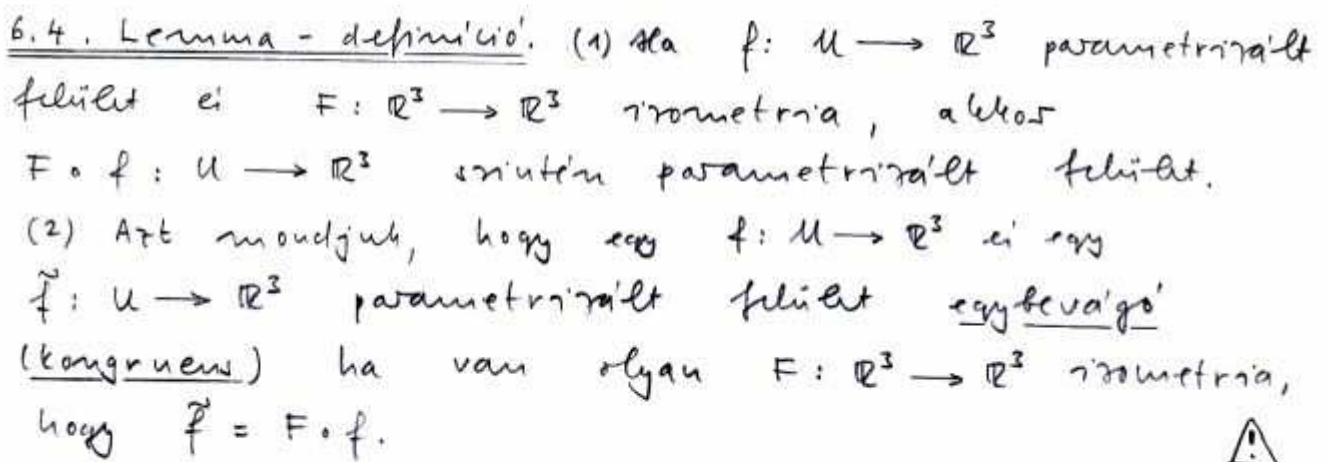 6.4. Lemma - definíció. (1) Ha f: U ⟶ ℝ³ parametrizált
felület és F: ℝ³ ⟶ ℝ³ izometria, akkor
F ∘ f : U ⟶ ℝ³ szintén parametrizált felület.
(2) Azt mondjuk, hogy egy f: U ⟶ ℝ³ és egy
f̃: U ⟶ ℝ³ parametrizált felület egybevágó
(kongruens) ha van olyan F: ℝ³ ⟶ ℝ³ izometria,
hogy f̃ = F ∘ f.